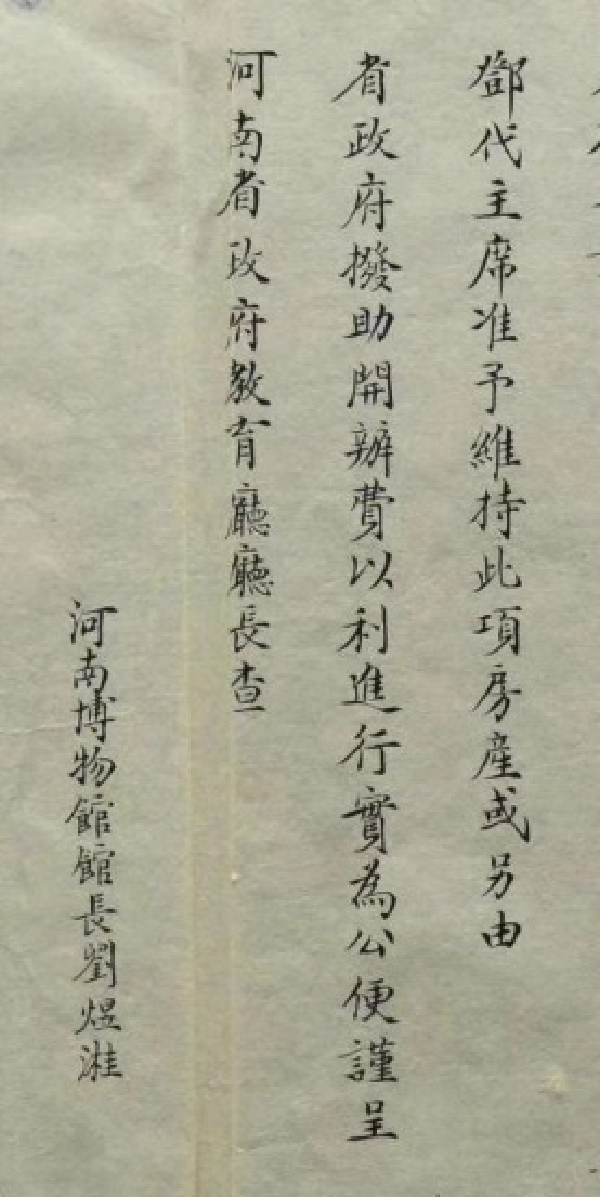 鄧代主席准予維持此項房產或另由
省政府撥助開辦費以利進行實為公便謹呈
河南省政府教育廳廳長查
河南博物館館長劉煜